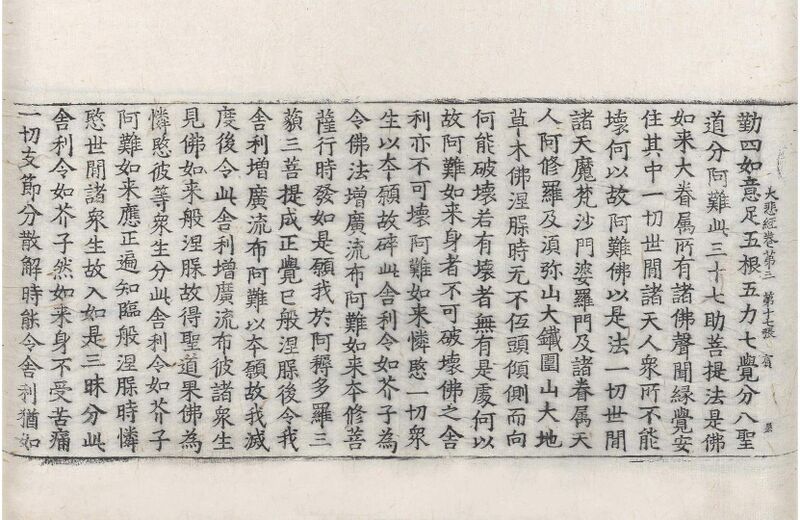 大悲經卷第三 第十七張
勤四如意足五根五力七覺分八聖
道分阿難此三十七助菩提法是佛
如来大眷属所有諸佛聲聞緣覺安
住其中一切世間諸天人衆所不能
壞何以故阿難佛以是法一切世間
諸天魔梵沙門婆羅門及諸眷属天
人阿修羅及湏弥山大鐵圍山大地
草木佛涅槃時无不低頭傾側而向
何能破壞若有壞者無有是處何以
故阿難如来身者不可破壞佛之舍
利亦不可壞阿難如来憐愍一切衆
生以夲願故碎此舍利令如芥子為
令佛法增廣流布阿難如来夲修菩
薩行時發如是願我於阿耨多羅三
藐三菩提成正覺已般涅槃後令我
舍利增廣流布阿難以夲願故我滅
度後令此舍利增廣流布彼諸衆生
見佛如来般涅槃故得聖道果佛為
憐愍彼等衆生分此舍利令如芥子
阿難如来應正遍知臨般涅槃時憐
愍世間諸衆生故入如是三昧分此
舍利令如芥子然如来身不受苦痛
一切支節分散解時能令舍利猶如